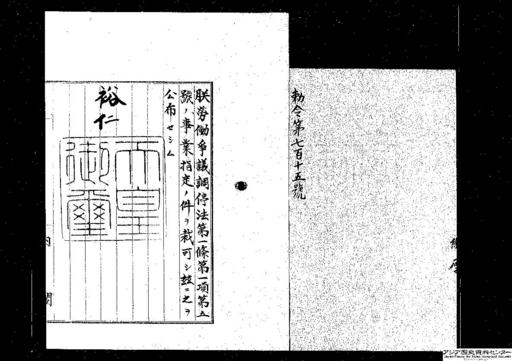 勅令第七百十五號
朕労働爭議調停法第一條第一項第五
號ノ事業指定ノ件ヲ裁可シ玆ニ之ヲ
公布セシム
裕仁
天皇
御璽
内閣
アジア歴史資料センター